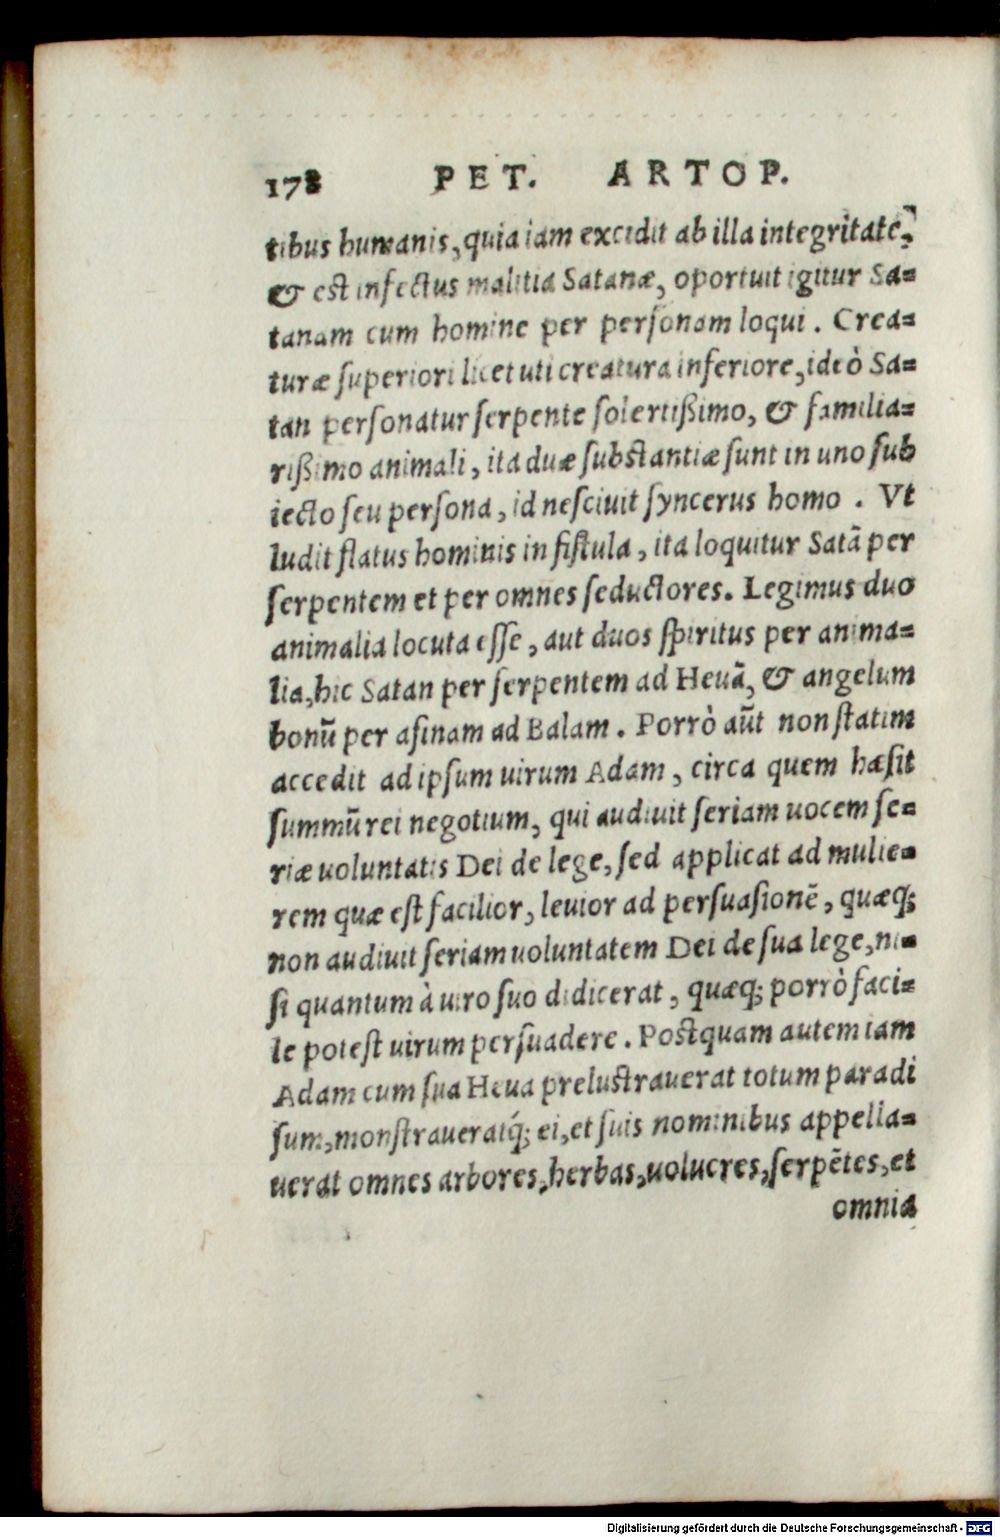 178 PET. ARTOP.
tibus humanis, quia iam excidit ab illa integritate,
& est infectus malitia Satanæ, oportuit igitur Sa=
tanam cum homine per personam loqui. Crea=
turæ superiori licet uti creatura inferiore, ideò Sa=
tan personatur serpente solertißimo, & familia=
rißimo animali, ita duæ substantiæ sunt in uno sub
iecto seu persona, id nesciuit syncerus homo. Vt
ludit flatus hominis in fistula, ita loquitur Satā per
serpentem et per omnes seductores. Legimus duo
animalia locuta esse, aut duos spiritus per anima=
lia, hic Satan per serpentem ad Heuā, & angelum
bonū per asinam ad Balam. Porrò aūt non statim
accedit ad ipsum uirum Adam, circa quem hæsit
summū rei negotium, qui audiuit seriam uocem se=
riæ uoluntatis Dei de lege, sed applicat ad mulie=
rem quæ est facilior, leuior ad persuasionē, quæq;
non audiuit seriam uoluntatem Dei de sua lege, ni=
si quantum à uiro suo didicerat, quæq; porrò faci=
le potest uirum persuadere. Postquam autem iam
Adam cum sua Heua prelustrauerat totum paradi
sum, monstraueratq́; ei, et suis nominibus appella=
uerat omnes arbores, herbas, uolucres, serpētes, et
omnia
Digitalisierung gefördert durch die Deutsche Forschungsgemeinschaft - DFG